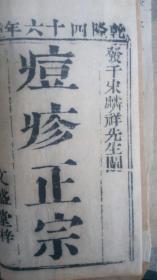 乾隆四十六年
千東麟祥先生閱
痘疹正宗
文盛堂梓